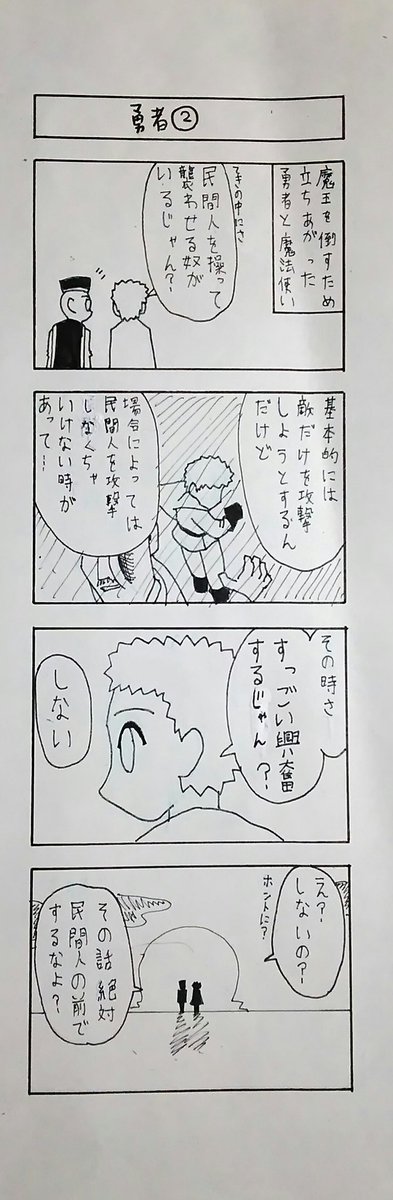 勇者②
魔王を倒すため
立ちあがった
勇者と魔法使い
てきの中にさ
民間人を操って
襲わせる奴が
いるじゃん?
基本的には
敵だけを攻撃
しようとするん
だけど
場合によっては
民間人を攻撃
しなくちゃ
いけない時が
あって…
その時さ
すっごい興奮
するじゃん?
しない
え?
しないの?
ホントに?
その話絶対
民間人の前で
するなよ?